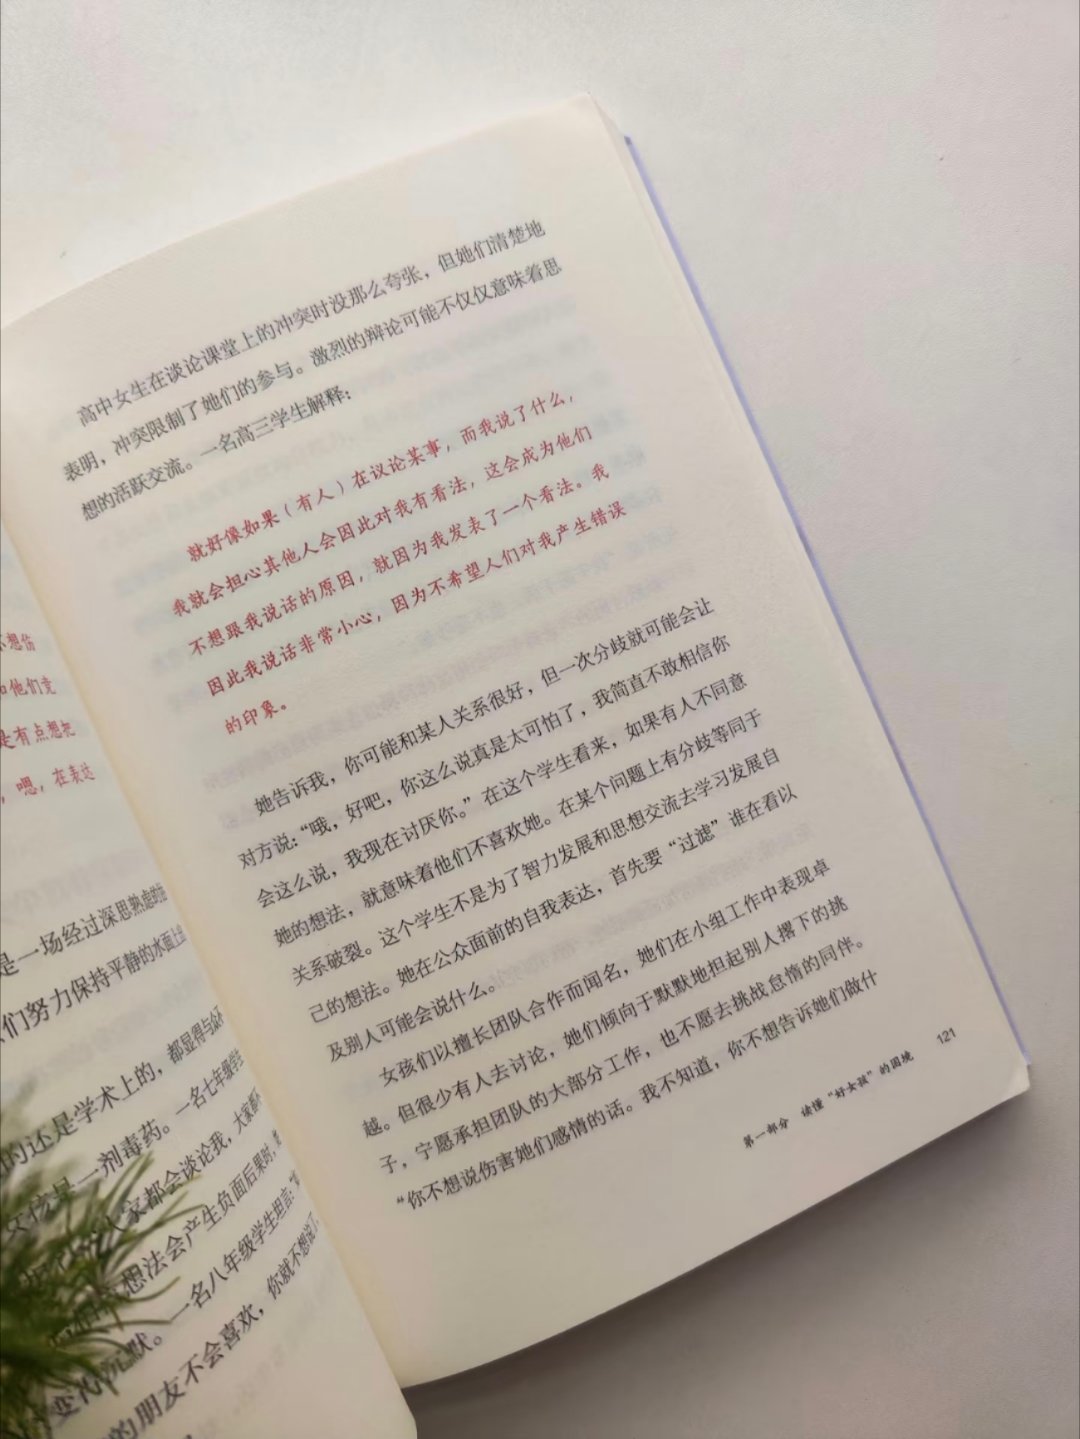 不想伤
和他们竞
是有点想把
，嗯，在表达
是一场经过深思熟虑的
们努力保持平静的水面上
的还是学术上的，都显得与众
女孩是一剂毒药。一名七年级学生
人家都会谈论我，大家都
想法会产生负面后果时，
变得沉默。一名八年级学生坦言：
的朋友不会喜欢，你就不想说了
高中女生在谈论课堂上的冲突时没那么夸张，但她们清楚地
表明，冲突限制了她们的参与。激烈的辩论可能不仅仅意味着思
想的活跃交流。一名高三学生解释：
就好像如果（有人）在议论某事，而我说了什么，
我就会担心其他人会因此对我有看法，这会成为他们
不想跟我说话的原因，就因为我发表了一个看法。我
因此我说话非常小心，因为不希望人们对我产生错误
的印象。
她告诉我，你可能和某人关系很好，但一次分歧就可能会让
对方说：“哦，好吧，你这么说真是太可怕了，我简直不敢相信你
会这么说，我现在讨厌你。”在这个学生看来，如果有人不同意
她的想法，就意味着他们不喜欢她。在某个问题上有分歧等同于
关系破裂。这个学生不是为了智力发展和思想交流去学习发展自
己的想法。她在公众面前的自我表达，首先要“过滤”谁在看以
及别人可能会说什么。
女孩们以擅长团队合作而闻名，她们在小组工作中表现卓
越。但很少有人去讨论，她们倾向于默默地担起别人撂下的挑
子，宁愿承担团队的大部分工作，也不愿去挑战怠惰的同伴。
“你不想说伤害她们感情的话。我不知道，你不想告诉她们做什
第一部分 读懂“好女孩”的困境 121